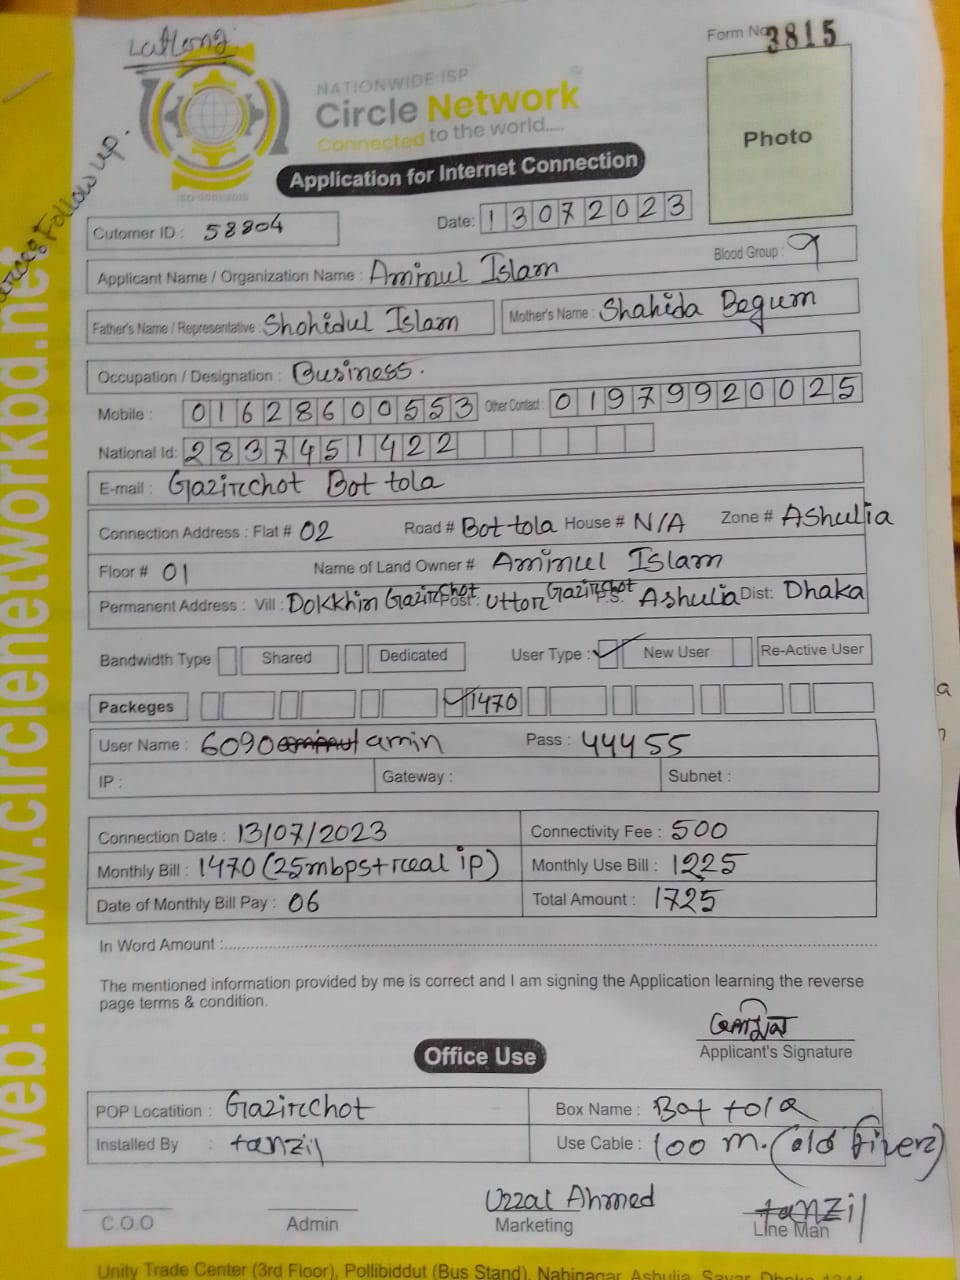 Latlong
Form No 3815
NATIONWIDE ISP
Circle Network
Connected to the world.....
Photo
Application for Internet Connection
ISO 9001:2015
Follow up.
Cutomer ID : 58804
Date: 13072023
Applicant Name / Organization Name : Aminul Islam
Blood Group :
Father's Name / Representative : Shohidul Islam
Mother's Name : Shahida Begum
Occupation / Designation : Business.
Mobile : 01628600553 Other Contact : 01979920025
National Id: 2837451422
E-mail : Gazirchot Bot tola
Connection Address : Flat # 02 Road # Bot tola House # N/A Zone # Ashulia
Floor # 01 Name of Land Owner # Aminul Islam
Permanent Address : Vill : Dokkhin Gazirchot Post : Uttor Gazirchot P.S. Ashulia Dist: Dhaka
Bandwidth Type Shared Dedicated User Type : New User Re-Active User
Packeges 1470
User Name : 6090 amin Pass : 44455
IP : Gateway : Subnet :
Connection Date : 13/07/2023 Connectivity Fee : 500
Monthly Bill : 1470 (25mbps+real ip) Monthly Use Bill : 1225
Date of Monthly Bill Pay : 06 Total Amount : 1725
In Word Amount :
The mentioned information provided by me is correct and I am signing the Application learning the reverse
page terms & condition.
Applicant's Signature
Office Use
POP Locatition : Gazirchot Box Name : Bot tola
Installed By : tanzil Use Cable : 100 m. (old fiver)
C.O.O
Admin
Uzzal Ahmed
Marketing
tanzil
Line Man
web: www.circlenetworkbd.net
Unity Trade Center (3rd Floor), Pollibiddut (Bus Stand), Nabinagar, Ashulia, Savar, Dhaka